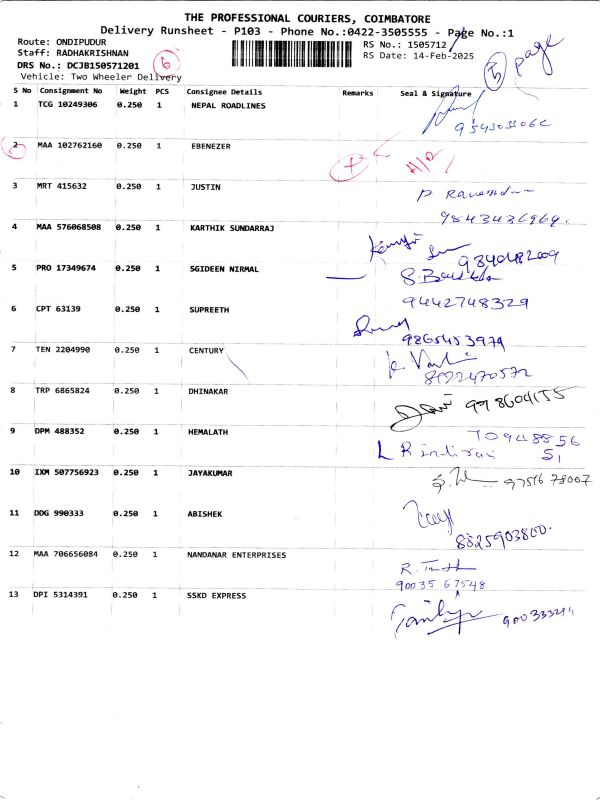 THE PROFESSIONAL COURIERS, COIMBATORE
Delivery Runsheet - P103 - Phone No.:0422-3505555 - Page No.:1
Route: ONDIPUDUR
Staff: RADHAKRISHNAN
DRS No.: DCJB150571201
Vehicle: Two Wheeler Delivery
6
RS No.: 1505712
RS Date: 14-Feb-2025
5 page
S No Consignment No Weight PCS Consignee Details Remarks Seal & Signature
1 TCG 10249306 0.250 1 NEPAL ROADLINES
2 MAA 102762160 0.250 1 EBENEZER
3 MRT 415632 0.250 1 JUSTIN
9843436969.
4 MAA 576068508 0.250 1 KARTHIK SUNDARRAJ
9840482009
5 PRO 17349674 0.250 1 SGIDEEN NIRMAL
9442748329
6 CPT 63139 0.250 1 SUPREETH
9865453979
7 TEN 2204990 0.250 1 CENTURY
8122470572
8 TRP 6865824 0.250 1 DHINAKAR
9 DPM 488352 0.250 1 HEMALATH
70948856
51
10 IXM 507756923 0.250 1 JAYAKUMAR
97516 78007
11 DDG 990333 0.250 1 ABISHEK
8825903800.
12 MAA 706656084 0.250 1 NANDANAR ENTERPRISES
90035 67548
13 DPI 5314391 0.250 1 SSKD EXPRESS